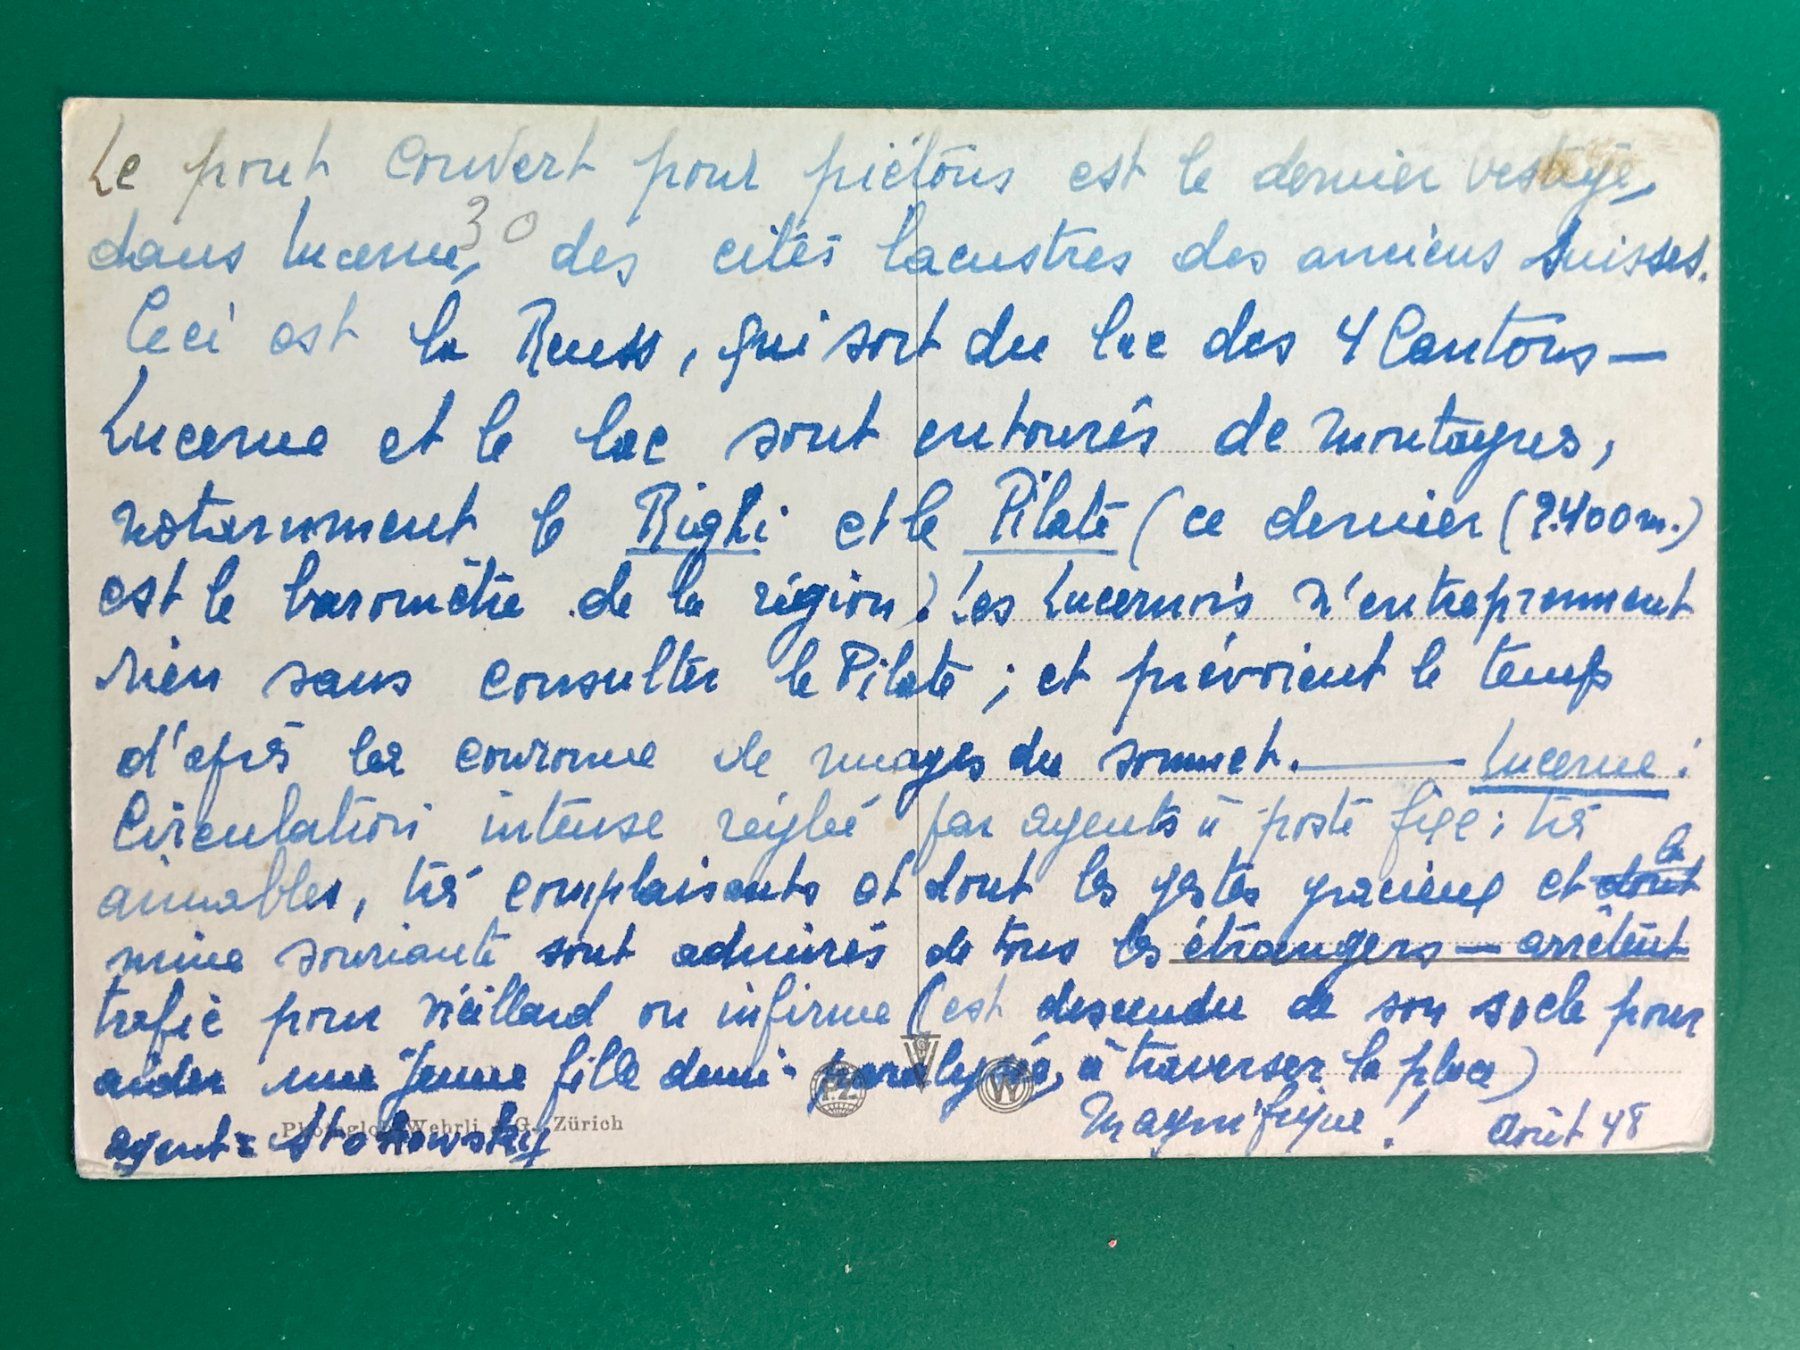 Le pont couvert pour piétons est le dernier vestige,
30
dans Lucerne, des cités lacustres des anciens Suisses.
Ceci est la Reuss, qui sort du lac des 4 Cantons —
Lucerne et le lac sont entourés de montagnes,
notamment le Righi et le Pilate (ce dernier (2.400 m.)
est le baromètre de la région). Les Lucernois n'entreprennent
rien sans consulter le Pilate ; et prévoient le temps
d'après la couronne de nuages du sommet. — Lucerne :
Circulation intense réglée par agents à poste fixe ; très
aimables, très complaisants et dont les gestes gracieux et dont la
mine souriante sont admirés de tous les étrangers — arrêtent
trafic pour vieillard ou infirme (est descendu de son socle pour
aider une jeune fille demi-paralysée, à traverser la place)
Magnifique ! Août 48
agent = Stokowsky
Photoglob-Wehrli A.G., Zürich